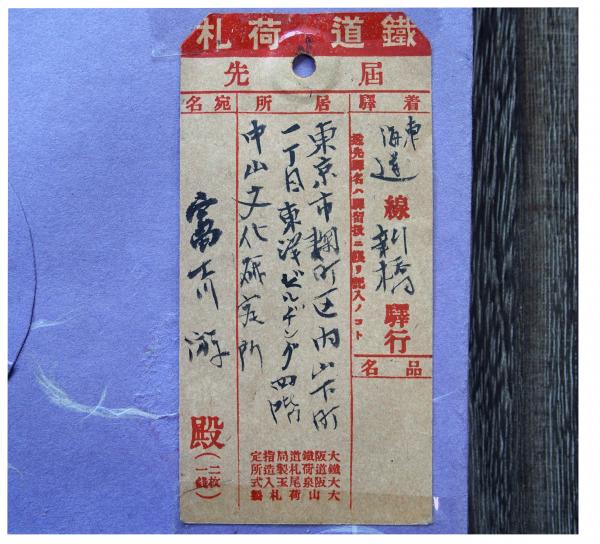 鐵道荷札
届先
着驛
居所
宛名
東海道線新橋驛行
先驛名ハ驛留扱ニ限リ記入ノコト
品名
東京市麹町区内山下町
一丁目東洋ビルヂング四階
中山文化研究所
富士川游殿
(二枚一錢)
大阪鐵道局指定
鐵道荷札製造所
大阪泉尾玉入式
大山荷札製